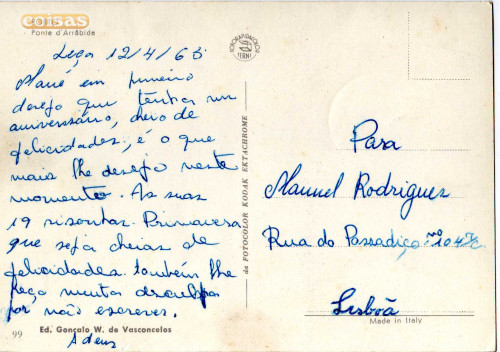 coisas
PORTO
Ponte d'Arrábida
Leça 12/4/65
Mané em primeiro
desejo que tenhas um
aniversário, cheio de
felicidades, é o que
mais lhe desejo neste
momento. As suas
19 risonhas Primavera
que seja cheias de
felicidades. também lhe
peço muita desculpa
por não escrever.
Adeus
99
Ed. Gonçalo W. de Vasconcelos
FOTORAPIDACOLOR
TERNI
da FOTOCOLOR KODAK EKTACHROME
Para
Manuel Rodrigues
Rua do Passadiço nº 104
Lisbôa
Made in Italy